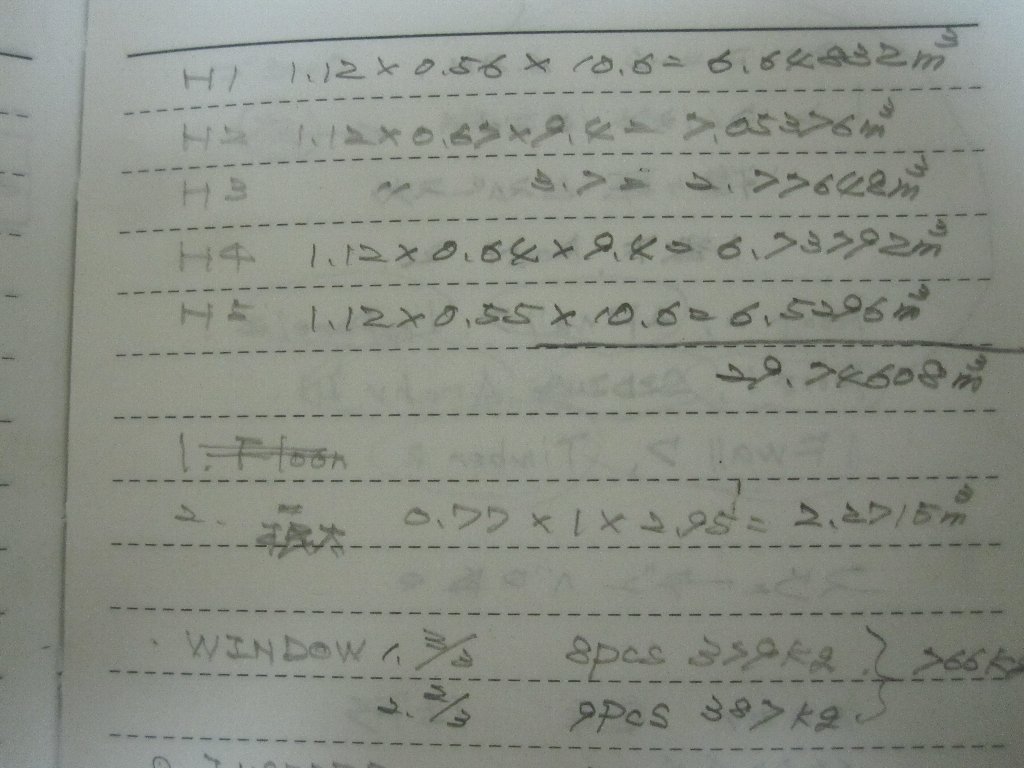 H1 1.12×0.56×10.6=6.64832m³
H2 1.12×0.67×9.4=7.05376m³
H3 〃 3.7=2.77648m³
H4 1.12×0.64×9.4=6.73792m³
H5 1.12×0.55×10.6=6.5296m³
29.74608m³
1. Floor
2. 0.77×1×2.95=2.2715m³
WINDOW 1. 3/3 8pcs 379kg } 766kg
2. 2/3 9pcs 387kg